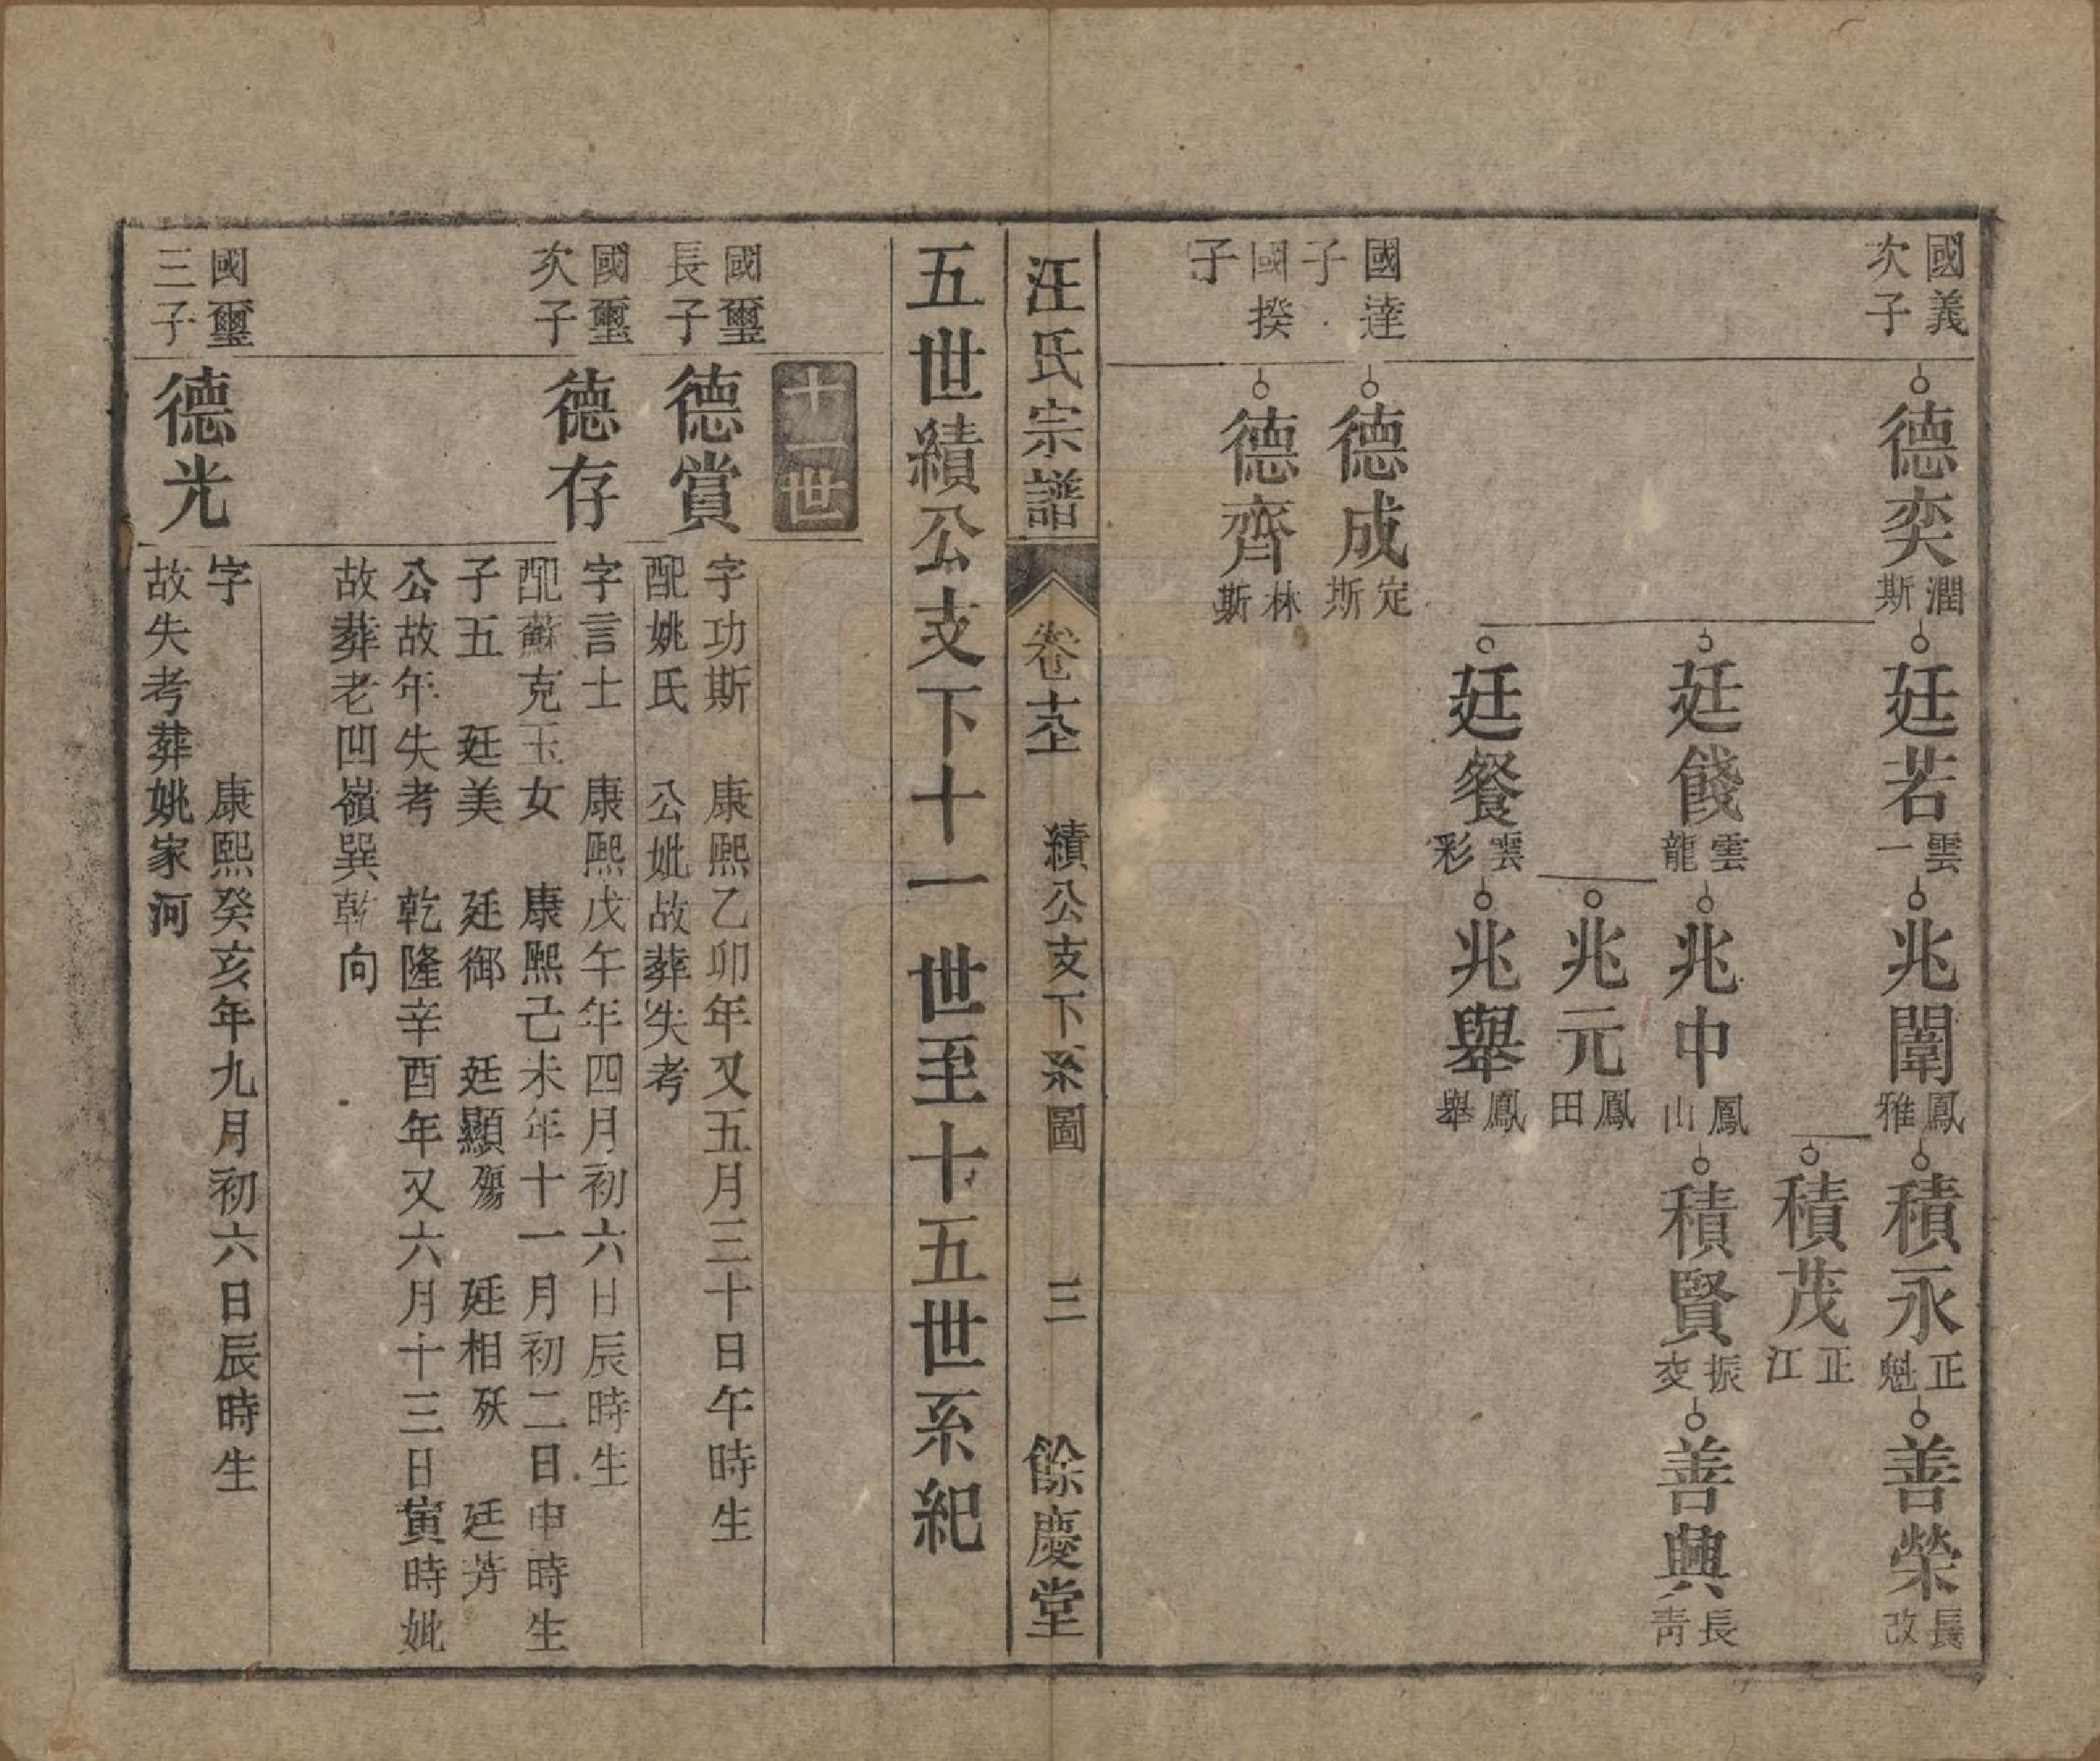 國義
次子
德奕
潤斯
廷若
雲一
兆闈
鳳雅
積永
正魁
善榮
長改
積茂
正江
廷餞
雲龍
兆中
鳳山
積賢
振
善興
長靑
兆元
鳳田
廷餐
雲彩
兆舉
鳳舉
國達
子
德成
定斯
國揆
子
德齊
林斯
汪氏宗譜
卷十六上
績公支下系圖
三
餘慶堂
五世績公支下十一世至十五世系紀
十一世
國璽
長子
德賞
字功斯 康熙乙卯年又五月三十日午時生
配姚氏 公妣故葬失考
國璽
次子
德存
字言士 康熙戊午年四月初六日辰時生
配蘇克玉女 康熙己未年十一月初二日申時生
子五 廷美 廷御 廷顯殤 廷相殀 廷芳
公故年失考 乾隆辛酉年又六月十三日寅時妣
故葬老凹嶺巽乾向
國璽
三子
德光
字 康熙癸亥年九月初六日辰時生
故失考葬姚家河